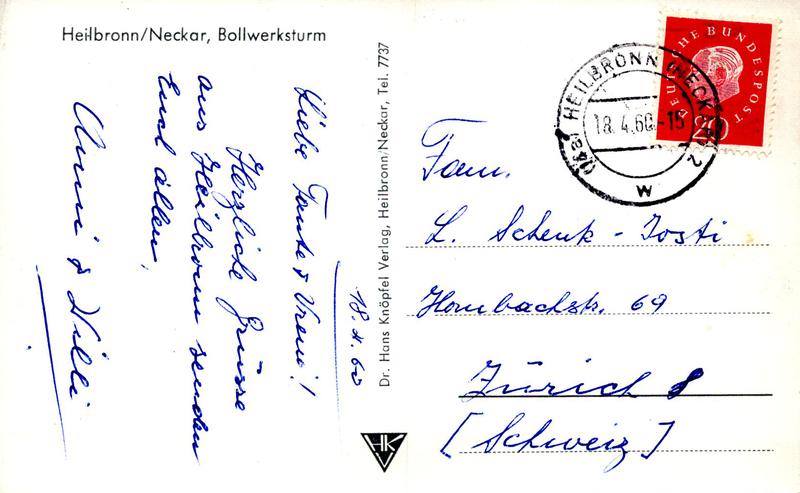 Heilbronn/Neckar, Bollwerksturm
18.4.60
Liebe Tante & Vreni!
Herzliche Grüsse
aus Heilbronn senden
Euch allen,
Anni & Willi
Dr. Hans Knöpfel Verlag, Heilbronn/Neckar, Tel. 7737
HK
DEUTSCHE BUNDESPOST
20
HEILBRONN (NECKAR) 2
18.4.60.-15
w
Fam.
L. Schenk-Josti
Hombachstr. 69
Zürich 8
[Schweiz]